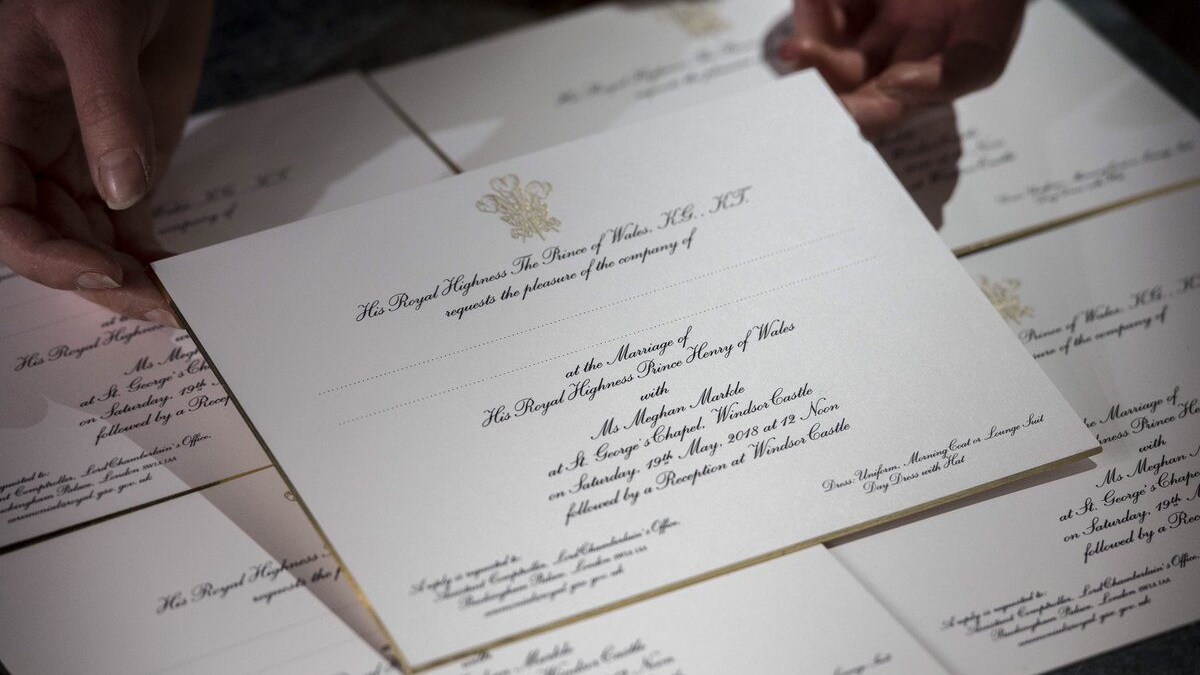 His Royal Highness The Prince of Wales, KG., KT.
requests the pleasure of the company of
at the Marriage of
His Royal Highness Prince Henry of Wales
with
Ms Meghan Markle
at St. George's Chapel, Windsor Castle
on Saturday, 19th May, 2018 at 12 Noon
followed by a Reception at Windsor Castle
Dress: Uniform, Morning Coat or Lounge Suit
Day Dress with Hat
A reply is requested to:
Assistant Comptroller, Lord Chamberlain's Office,
Buckingham Palace, London SW1A 1AA
His Royal Highness The Pri
requests the pleas
Wales, KG., KT.
company of
at th
His Royal Highn
Ms Megh
at St. George's
on Saturday, 19th
followed by a Recep
requested to:
Comptroller, Lord Chamberlain's Office,
Buckingham Palace, London SW1A 1AA
His Royal Highness
requests the p
Prince of Wales, KG., K
sure of the company of
he Marriage of
ghness Prince He
with
Ms Meghan M
at St. George's Chapel
on Saturday, 19th M
followed by a R
A reply is requested to:
Assistant Comptroller, Lord Chamberlain's Office,
Buckingham Palace, London SW1A 1AA
with
Meghan Markle
Windsor Castle
Noon
or Lounge Suit